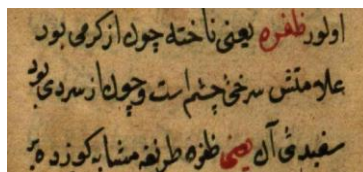 اولور ظفره یعنی ناخنه چون از کرمی بود
علامتش سرخی چشم است و چون از سردی بود
سفیدی آن یعنی ظفره طریقه مشابه کوزده بر